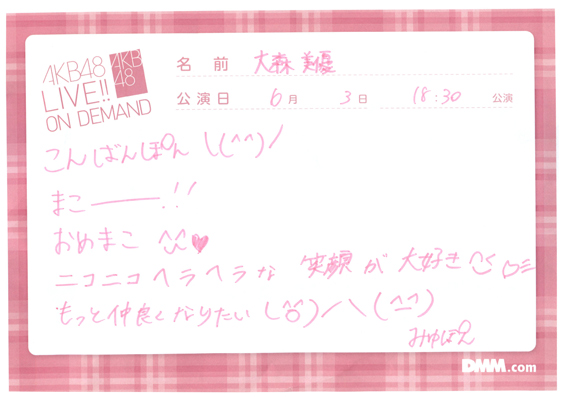 AKB48
LIVE!!
ON DEMAND
AKB
48
名前 大森美優
公演日 6月 3日 18:30 公演
こんばんぽん \(^^)/
まこ———!!
おめまこ ^^♥
ニコニコヘラヘラな 笑顔が 大好き
もっと仲良くなりたい \(^o^)/\(^-^)
みゆぽん
DMM.com